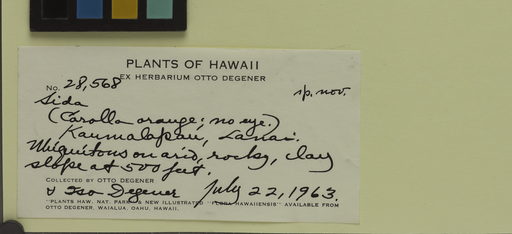 PLANTS OF HAWAII
EX HERBARIUM OTTO DEGENER
No. 28,568 sp. nov.
Sida
(Corolla orange; no eye.)
Kaumalapau, Lanai.
Ubiquitous on arid, rocky, clay
slope at 500 feet.
COLLECTED BY OTTO DEGENER
& Isa Degener July 22, 1963.
"PLANTS HAW. NAT. PARK" & NEW ILLUSTRATED "FLORA HAWAIIENSIS" AVAILABLE FROM
OTTO DEGENER, WAIALUA, OAHU, HAWAII.